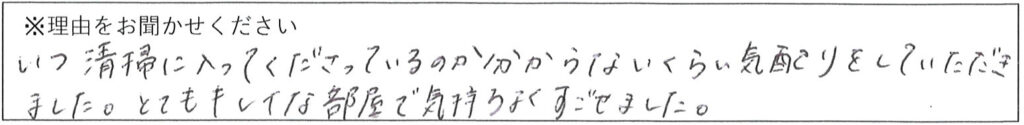 ※理由をお聞かせください
いつ清掃に入ってくださっているのか分からないくらい気配りをしていただき
ました。とてもキレイな部屋で気持ちよくすごせました。